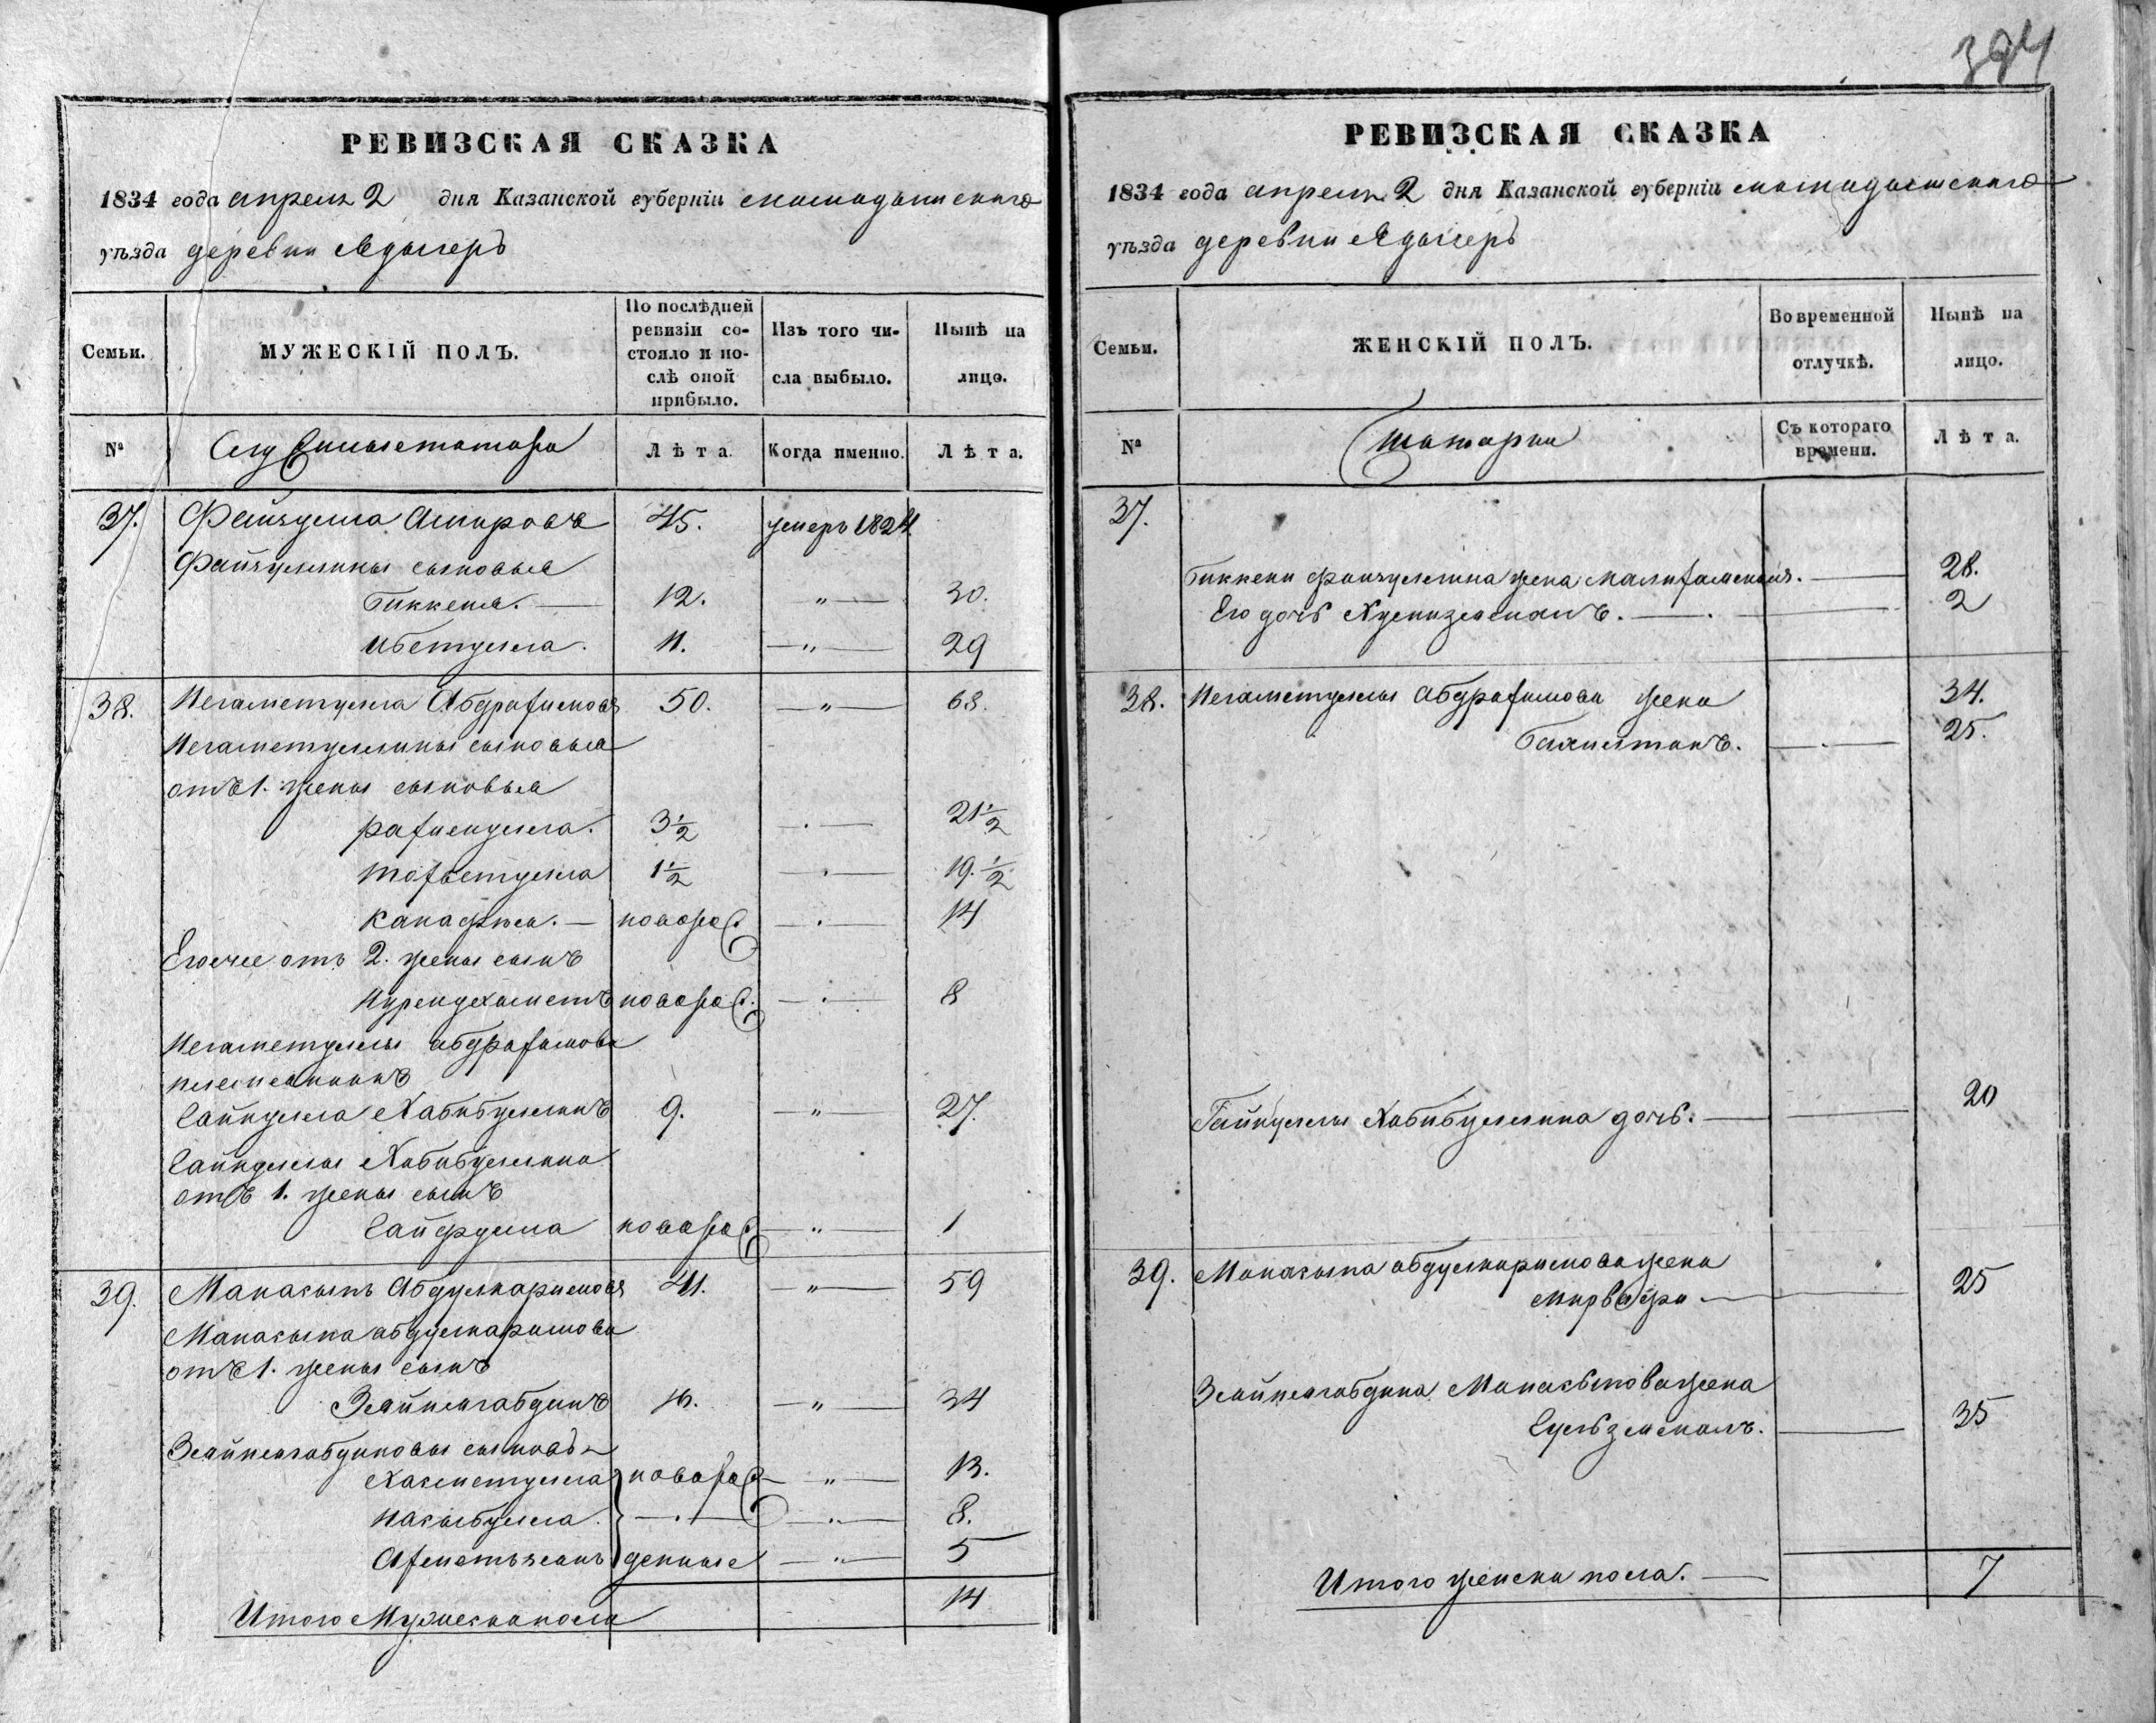 384
РЕВИЗСКАЯ СКАЗКА
1834 года апреля 2 дня Казанской губерніи мамадышского
уѣзда деревни Ядыгеръ
Семьи.
МУЖЕСКІЙ ПОЛЪ.
По послѣдней ревизіи со-
стояло и по-
слѣ оной
прибыло.
Изъ того чи-
сла выбыло.
Нынѣ на
лицо.
№
Лѣта.
Когда именно.
Лѣта.
37. Файзулла Амировъ 45. умеръ 1824.
Файзуллины сыновья
Биккеня. 12. „ 30.
Ибетулла. 11. „ 29
38. Негаметулла Абдрафиковъ 50. „ 68.
Негаметуллины сыновья
отъ 1. жены сыновья
3½ 21½
1½ 19.½
Канафея. новорож. 14
Его же отъ 2. жены сынъ
Нуреидхаметъ новорож. 8
Негаметуллы абдрафикова
племянникъ
Гайнулла Хабибуллинъ 9. „ 27.
Гайнуллы Хабибуллина
отъ 1. жены сынъ
Сайфулла новорож. „ 1
39. Манасыпъ Абдулкаримовъ 41. „ 59
Манасыпа абдулкаримова
отъ 1. жены сынъ
Зейнелгабдинъ 16. „ 34
Зейнелгабдиновы сыновья
Хасметулла новорож „ 13.
Насыбулла. 8.
Ахметьянъ денные „ 5
Итого Мужеска пола 14
РЕВИЗСКАЯ СКАЗКА
1834 года апреля 2 дня Казанской губерніи мамадышского
уѣзда деревни Ядыгеръ
Семьи.
ЖЕНСКІЙ ПОЛЪ.
Во временной
отлучкѣ.
Нынѣ на
лицо.
№
татарки
Съ котораго
времени.
Лѣта.
37.
Биккени файзуллина жена 28.
Его дочь 2
38. Негаметуллы Абдрафикова жена 34.
25.
Гайнуллы Хабибуллина дочь. 20
39. Манасыпа абдулкаримова жена
25
Зейнелгабдина Манасыпова жена
35
Итого женска пола. 7